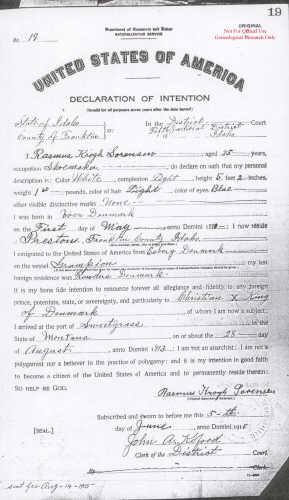 19
ORIGINAL
Not For Official Use
Genealogical Research Only
Department of Commerce and Labor
NATURALIZATION SERVICE
No. 19
UNITED STATES OF AMERICA
DECLARATION OF INTENTION
(Invalid for all purposes seven years after the date hereof)
State of Idaho
County of Franklin
ss:
In the District Court
Fifth Judicial District
of Idaho
I, Rasmus Krogh Sorensen, aged 35 years,
occupation Shoemaker, do declare on oath that my personal
description is: Color White, complexion Light, height 5 feet 2 inches,
weight pounds, color of hair Light, color of eyes Blue
other visible distinctive marks None
I was born in Denmark
on the First day of May, anno Domini; I now reside
at Preston, Franklin County Idaho
I emigrated to the United States of America from Esberg Denmark
on the vessel; my last
foreign residence was Denmark
It is my bona fide intention to renounce forever all allegiance and fidelity to any foreign
prince, potentate, state, or sovereignty, and particularly to Christian X King
of Denmark, of whom I am now a subject;
I arrived at the port of Sweetgrass, in the
State of Montana, on or about the 28 day
of August, anno Domini 1913; I am not an anarchist; I am not a
polygamist nor a believer in the practice of polygamy; and it is my intention in good faith
to become a citizen of the United States of America and to permanently reside therein:
SO HELP ME GOD.
Rasmus Krogh Sorensen
Subscribed and sworn to before me this 5-th
[SEAL.]
day of June, anno Domini 1915
John A.
Clerk of the District Court.
Clerk.
sent for Aug-14-1915